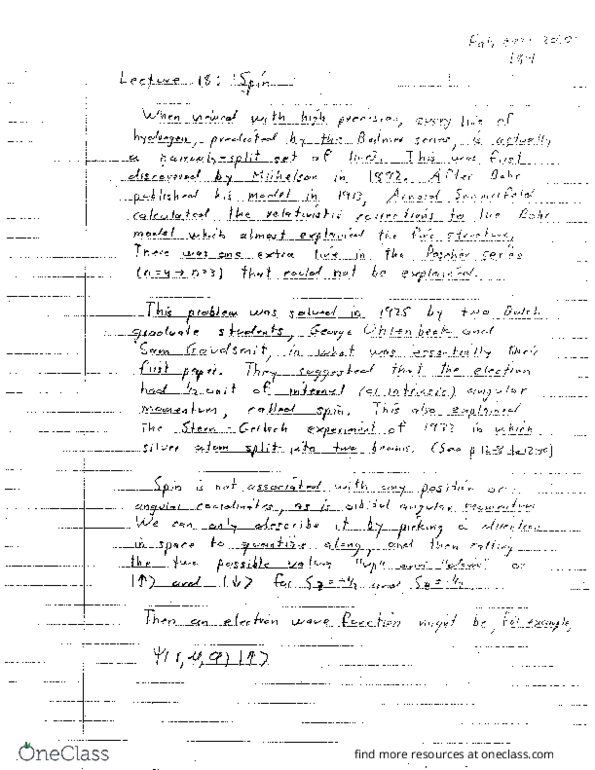 18-1
Lecture 18: Spin
When viewed with high precision, every line of
hydrogen, predicted by the Balmer series, is actually
a narrowly-split set of lines. This was first
discovered by Michelson in 1892. After Bohr
published his model in 1913, Arnold Sommerfeld
calculated the relativistic corrections to the Bohr
model which almost explained the fine structure.
There was one extra line in the Paschen series
(n=4 → n=3) that could not be explained.
This problem was solved in 1925 by two Dutch
graduate students, George Uhlenbeck and
Sam Goudsmit, in what was essentially their
first paper. They suggested that the electron
had ½ unit of internal (or intrinsic) angular
momentum, called spin. This also explained
the Stern-Gerlach experiment of 1922 in which
silver atom split into two beams. (See p
Spin is not associated with any position or
angular coordinates, as is orbital angular momentum
We can only describe it by picking a direction
in space to quantize along, and then calling
the two possible values "up" and "down" or
|↑> and |↓> for Sz=+½ and Sz=-½
Then an electron wave function might be, for example,
|↑>
OneClass
find more resources at oneclass.com